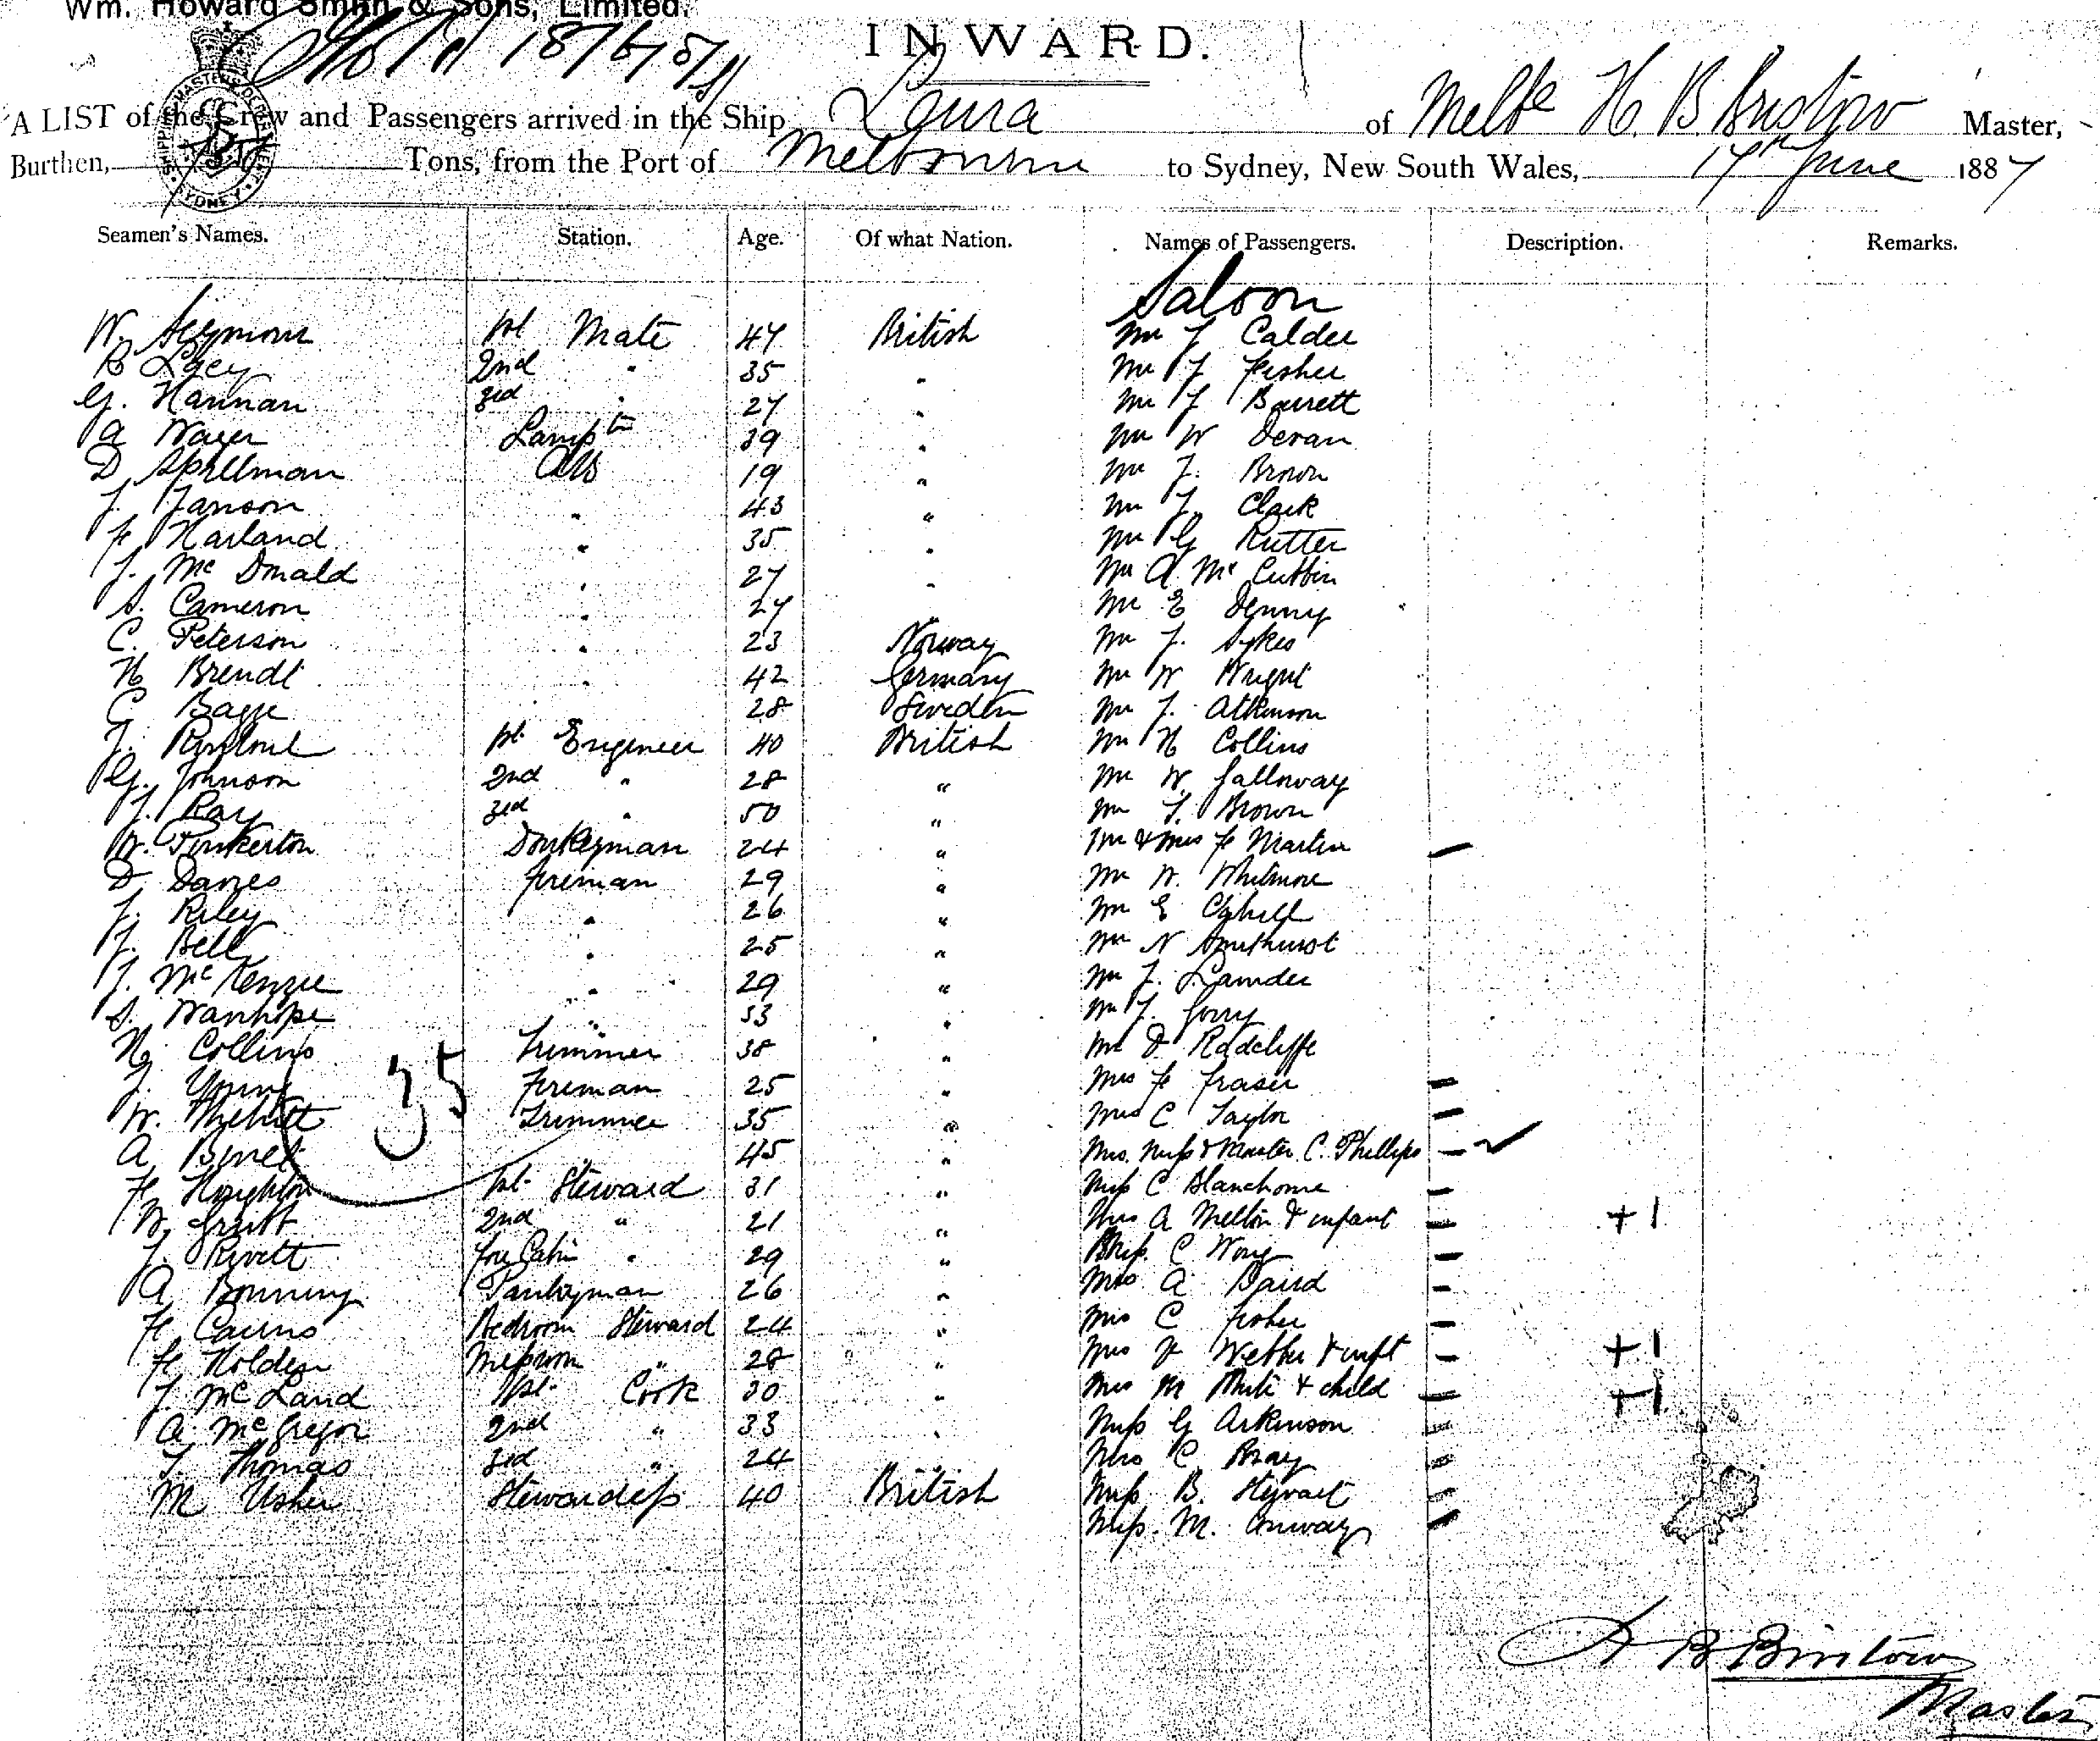 Wm. Howard Smith & Sons, Limited.
INWARD.
A LIST of the Crew and Passengers arrived in the Ship Leura of Melbe H. B. Bristow Master,
Burthen, Tons, from the Port of Melbourne to Sydney, New South Wales, 17th June 1887
Seamen's Names. Station. Age. Of what Nation. Names of Passengers. Description. Remarks.
Saloon
W. Seymour 1st Mate 47 British Mr J Calder
B Lacey 2nd " 35 " Mr J Fisher
G. Hannan 3rd " 27 " Mr J Barrett
A Wager Lampt 39 " Mr W Devan
D Spillman AB 19 " Mr J. Brown
J. Janson " 43 " Mr J. Clark
F Harland " 35 " Mr G Rutter
J. McDonald " 27 " Mr A. McCubbin
S. Cameron " 27 Mr E Denny
C. Peterson " 23 Norway Mr J. Sykes
H Brendt " 42 Germany Mr W Wright
C 28 Sweden Mr J. Atkinson
J. 1st Engineer 40 British Mr H Collins
G. Johnson 2nd " 28 " Mr W. Galloway
J. Ray 3rd " 50 " Mr T. Brown
W. Pinkerton Donkeyman 24 " Mr & Mrs F Martin –
D Davies Fireman 29 " Mr W. Whitmore
J. Riley " 26 " Mr E Cahill
J. Bell " 25 " Mr N Smethurst
J. McKenzie " 29 " Mr J.
S. Wanhope " 33 " Mr J. Gorry
H. Collins Trimmer 38 " Mr D Radcliffe
J. Young Fireman 25 " Mrs F Fraser –
35
W. Trimmer 35 " Mrs C Taylor –
A 45 " Mrs. Miss & Master C. Phillips – ✓
F Houghton 1st Steward 31 " Miss C Blanchome –
W. 2nd " 21 " Mrs A Melton & infant – +1
J. Rivett Fore Cabin " 29 " Miss C –
A Bonning Pantryman 26 " Mrs A Baird –
F Cairns Bedroom Steward 24 " Mrs C Fisher –
F Holden Messroom " 28 " Mrs Webber & inft – +1
J. 1st Cook 30 " Mrs M White & child – +1
A McGregor 2nd " 33 " Miss G Arkinson –
J. Thomas 3rd " 24 Mrs C. Bray –
M Usher Stewardess 40 British Miss B. Stewart –
Miss. M. Conway –
H B Bristow
Master